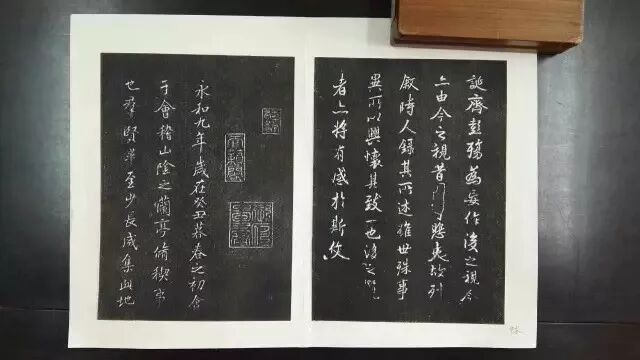 誕齊彭殤為妄作後之視今
亦由今之視昔悲夫故列
敘時人錄其所述雖世殊事
異所以興懷其致一也後之覽
者亦将有感於斯文
永和九年歲在癸丑暮春之初會
于會稽山陰之蘭亭脩禊事
也羣賢畢至少長咸集此地